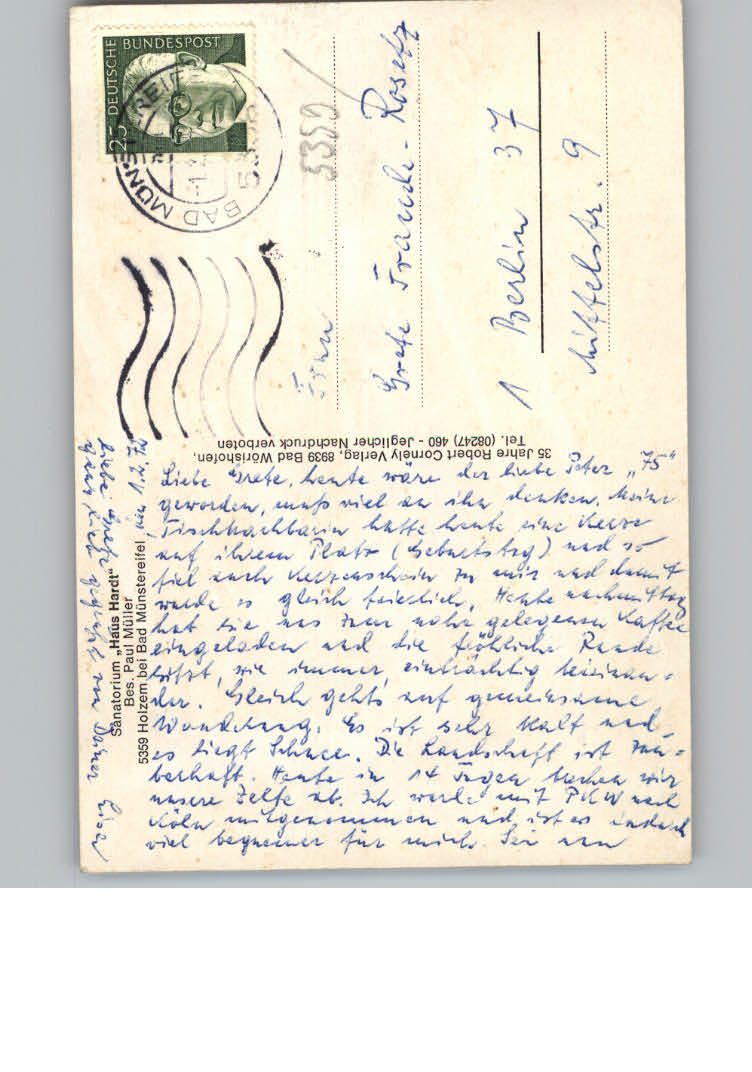 Sanatorium „Haus Hardt"
Bes. Paul Müller
5359 Holzem bei Bad Münstereifel
27.2.
Liebe Grete, heute wäre der liebe Peter „75"
geworden, muß viel an ihn denken. Meine
Tischnachbarin hatte heute eine Kerze
auf ihrem Platz (Geburtstag) und so
fiel auch Kerzenschein zu mir und damit
wurde es gleich feierlich. Heute nachmittag
hat sie uns zum nahe gelegenen Kaffee
eingeladen und die fröhliche Runde
sitzt, wie immer, einträchtig beieinan-
der. Gleich gehts auf gemeinsame
Wanderung. Es ist sehr kalt und
es liegt Schnee. Die Landschaft ist zau-
berhaft. Heute in 14 Tagen brechen wir
unsere Zelte ab. Ich werde mit PKW nach
Köln mitgenommen und ist es dadurch
viel bequemer für mich. Sei nun
liebe Grete
ganz lieb gegrüßt von Deiner
35 Jahre Robert Cornely Verlag, 8939 Bad Wörishofen,
Tel. (08247) 460 - Jeglicher Nachdruck verboten
DEUTSCHE BUNDESPOST
25
BAD MÜNSTEREIFEL
5350
Frau
Grete Traude-Rosetz
1 Berlin 37
Mittelstr. 9